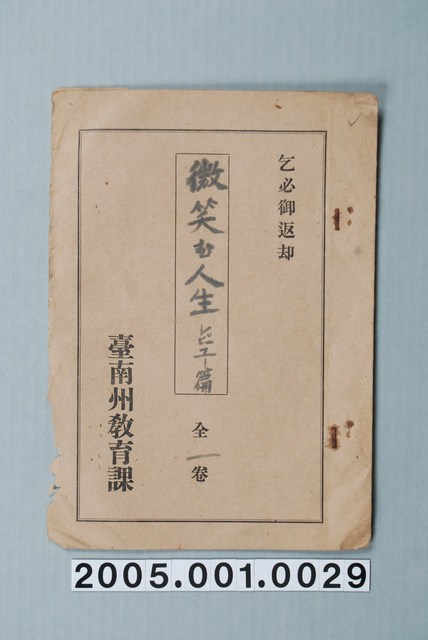 乞必御返却
微笑む人生 ビエ篇
全一卷
臺南州教育課
2005.001.0029